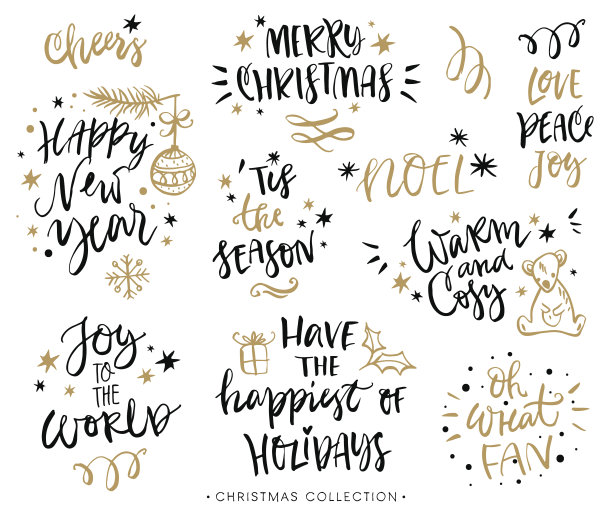 Cheers
MERRY
CHRISTMAS
LOVE
PEACE
Joy
HAPPY
New
year
'Tis
the
SEASON
NOEL
WARM
and
Cosy
Joy
TO
THE
WORLD
HAVE
THE
happiest OF
HOLiDAYS
oh
what
FAN
• CHRISTMAS COLLECTION •